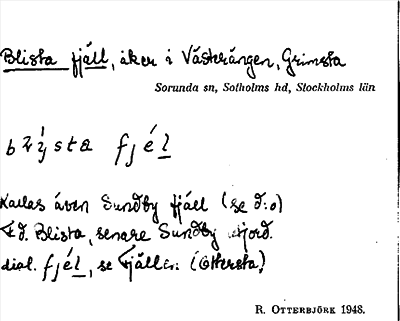 Blista fjäll, åker i Västerängen, Grimsta
Sorunda sn, Sotholms hd, Stockholms län
fjél
Kallas även Sundby fjäll (se d:o)
Blista, senare Sundby jord.
dial. fjél, se Fjällen (Ottersta)
R. Otterbjörk 1948.